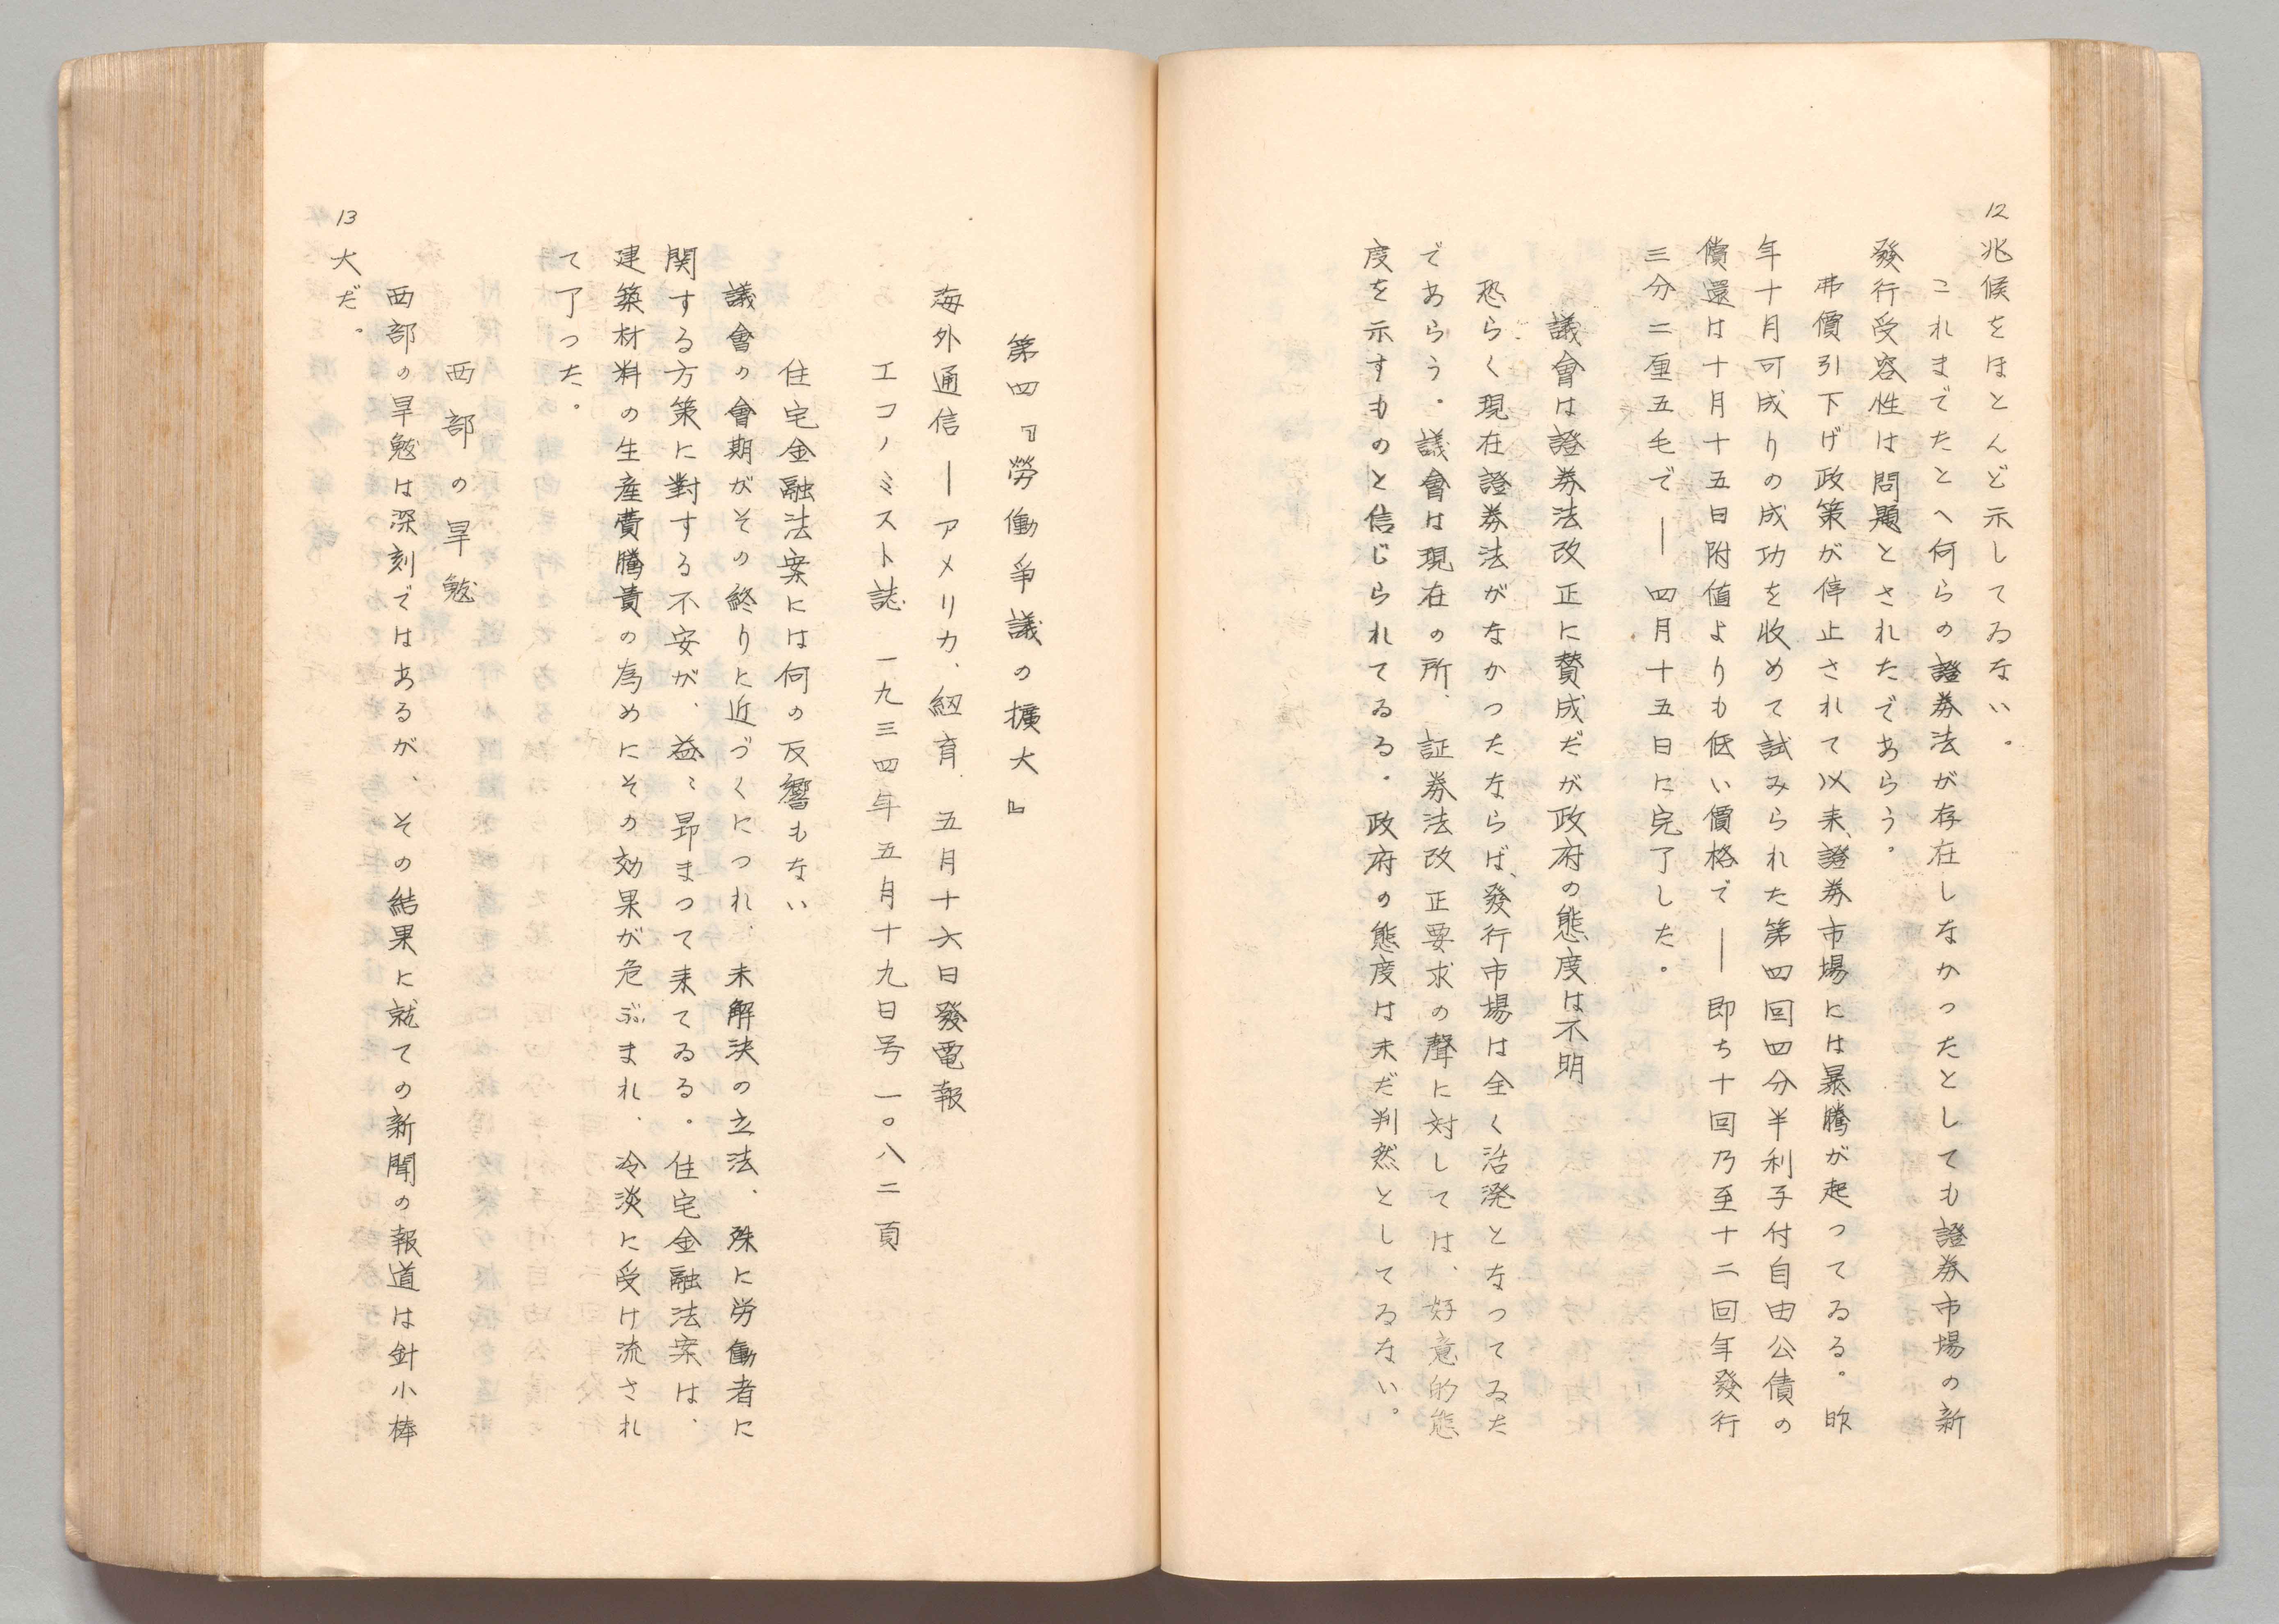 12
兆候をほとんど示してゐない。
これまでたとへ何らの證券法が存在しなかったとしても證券市場の新
發行受容性は問題とされたであらう。
弗價引下げ政策が停止されて以来、證券市場には暴騰が起ってゐる。昨
年十月可成りの成功を收めて試みられた第四回四分半利子付自由公債の
償還は十月十五日附値よりも低い價格で——即ち十回乃至十二回年發行
三分二厘五毛で——四月十五日に完了した。
議會は證券法改正に賛成だが政府の態度は不明
恐らく現在證券法がなかったならば、發行市場は全く活溌となってゐた
であらう。議會は現在の所、証券法改正要求の聲に対しては、好意的態
度を示すものと信じられてゐる。政府の態度は未だ判然としてゐない。
第四『勞働爭議の擴大』
海外通信—アメリカ、紐育、五月十六日發電報
エコノミスト誌 一九三四年五月十九日号一〇八二頁
住宅金融法案には何の反響もない
議會の會期がその終りに近づくにつれ、未解決の立法、殊に労働者に
関する方策に対する不安が、益〻昂まって来てゐる。住宅金融法案は、
建築材料の生産費騰貴の為めにその効果が危ぶまれ、冷淡に受け流され
て了った。
西部の旱魃
西部の旱魃は深刻ではあるが、その結果に就ての新聞の報道は針小棒
13
大だ。